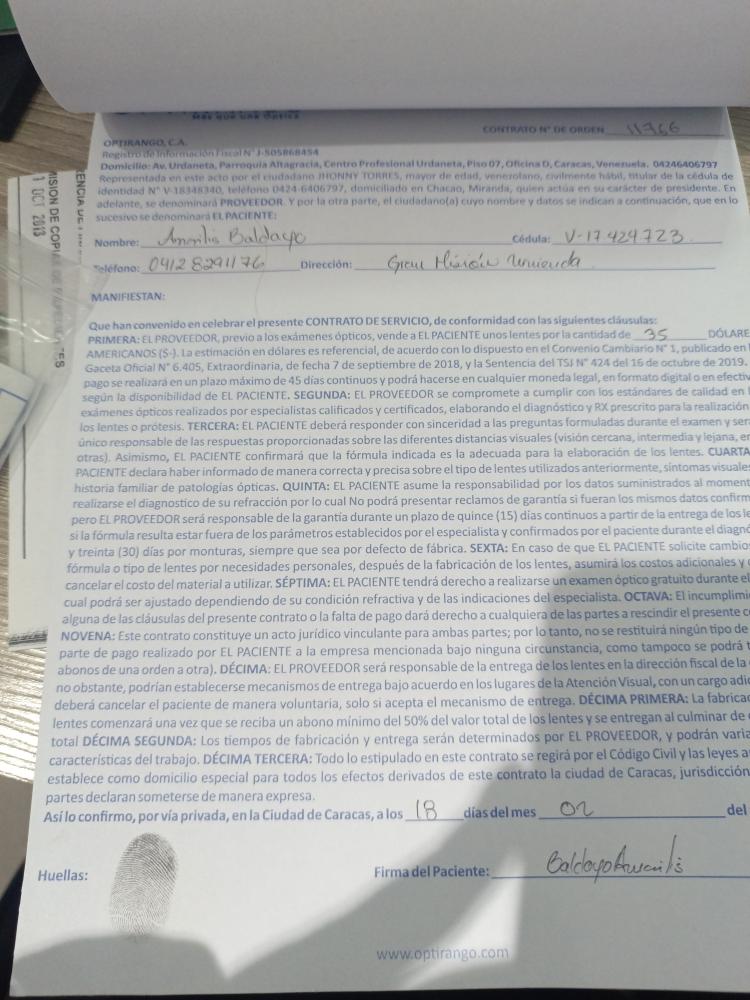 MÁS QUE UNA ÓPTICA
CONTRATO N° DE ORDEN 11766
OPTIRANGO, C.A.
Registro de Información Fiscal N° J-505868454
Domicilio: Av. Urdaneta, Parroquia Altagracia, Centro Profesional Urdaneta, Piso 07, Oficina D, Caracas, Venezuela. 04246406797
Representada en este acto por el ciudadano JHONNY TORRES, mayor de edad, venezolano, civilmente hábil, titular de la cédula de
identidad N° V-18348340, teléfono 0424-6406797, domiciliado en Chacao, Miranda, quien actúa en su carácter de presidente. En
adelante, se denominará PROVEEDOR. Y por la otra parte, el ciudadano(a) cuyo nombre y datos se indican a continuación, que en lo
sucesivo se denominará EL PACIENTE:
Nombre: Baldayo Cédula: V-17.424.723
Teléfono: 0412 8291176 Dirección: Gran Misión Vivienda
MANIFIESTAN:
Que han convenido en celebrar el presente CONTRATO DE SERVICIO, de conformidad con las siguientes cláusulas:
PRIMERA: EL PROVEEDOR, previo a los exámenes ópticos, vende a EL PACIENTE unos lentes por la cantidad de 35 DÓLARE
AMERICANOS ($-). La estimación en dólares es referencial, de acuerdo con lo dispuesto en el Convenio Cambiario N° 1, publicado en
Gaceta Oficial N° 6.405, Extraordinaria, de fecha 7 de septiembre de 2018, y la Sentencia del TSJ N° 424 del 16 de octubre de 2019.
pago se realizará en un plazo máximo de 45 días continuos y podrá hacerse en cualquier moneda legal, en formato digital o en efectiv
según la disponibilidad de EL PACIENTE. SEGUNDA: EL PROVEEDOR se compromete a cumplir con los estándares de calidad en
exámenes ópticos realizados por especialistas calificados y certificados, elaborando el diagnóstico y RX prescrito para la realización
los lentes o prótesis. TERCERA: EL PACIENTE deberá responder con sinceridad a las preguntas formuladas durante el examen y ser
único responsable de las respuestas proporcionadas sobre las diferentes distancias visuales (visión cercana, intermedia y lejana, en
otras). Asimismo, EL PACIENTE confirmará que la fórmula indicada es la adecuada para la elaboración de los lentes. CUARTA
PACIENTE declara haber informado de manera correcta y precisa sobre el tipo de lentes utilizados anteriormente, síntomas visuale
historia familiar de patologías ópticas. QUINTA: EL PACIENTE asume la responsabilidad por los datos suministrados al moment
realizarse el diagnostico de su refracción por lo cual No podrá presentar reclamos de garantía si fueran los mismos datos confirm
pero EL PROVEEDOR será responsable de la garantía durante un plazo de quince (15) días continuos a partir de la entrega de los le
si la fórmula resulta estar fuera de los parámetros establecidos por el especialista y confirmados por el paciente durante el diagnó
y treinta (30) días por monturas, siempre que sea por defecto de fábrica. SEXTA: En caso de que EL PACIENTE solicite cambio
fórmula o tipo de lentes por necesidades personales, después de la fabricación de los lentes, asumirá los costos adicionales y
cancelar el costo del material a utilizar. SÉPTIMA: EL PACIENTE tendrá derecho a realizarse un examen óptico gratuito durante el
cual podrá ser ajustado dependiendo de su condición refractiva y de las indicaciones del especialista. OCTAVA: El incumplimi
alguna de las cláusulas del presente contrato o la falta de pago dará derecho a cualquiera de las partes a rescindir el presente c
NOVENA: Este contrato constituye un acto jurídico vinculante para ambas partes; por lo tanto, no se restituirá ningún tipo de
parte de pago realizado por EL PACIENTE a la empresa mencionada bajo ninguna circunstancia, como tampoco se podrá t
abonos de una orden a otra). DÉCIMA: EL PROVEEDOR será responsable de la entrega de los lentes en la dirección fiscal de la
no obstante, podrían establecerse mecanismos de entrega bajo acuerdo en los lugares de la Atención Visual, con un cargo adic
deberá cancelar el paciente de manera voluntaria, solo si acepta el mecanismo de entrega. DÉCIMA PRIMERA: La fabricac
lentes comenzará una vez que se reciba un abono mínimo del 50% del valor total de los lentes y se entregan al culminar de
total DÉCIMA SEGUNDA: Los tiempos de fabricación y entrega serán determinados por EL PROVEEDOR, y podrán varia
características del trabajo. DÉCIMA TERCERA: Todo lo estipulado en este contrato se regirá por el Código Civil y las leyes a
establece como domicilio especial para todos los efectos derivados de este contrato la ciudad de Caracas, jurisdicción
partes declaran someterse de manera expresa.
Así lo confirmo, por vía privada, en la Ciudad de Caracas, a los 18 días del mes 02 del
Huellas: Firma del Paciente: Baldayo
www.optirango.com
MISION DE COPIA
1 OCT 2013